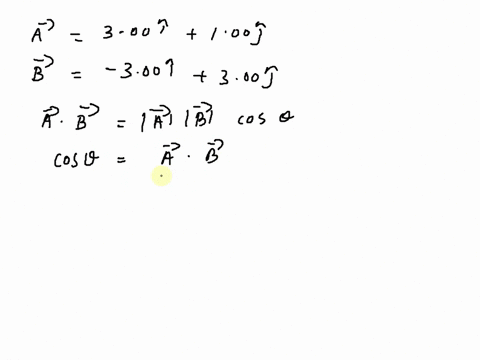 A⃗ = 3.00 î + 1.00 ĵ
B⃗ = -3.00 î + 3.00 ĵ
A⃗ · B⃗ = |A⃗| |B⃗| cos θ
cos θ = A⃗ · B⃗